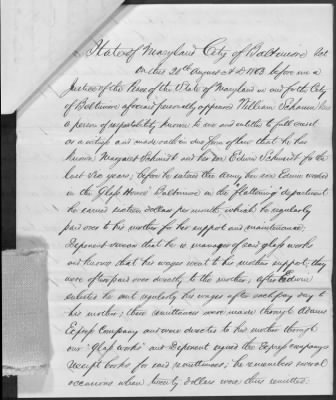 State of Maryland City of Baltimore Sct
On this 20th August A.D 1863 before me a
Justice of the Peace of the State of Maryland in and for the City
of Baltimore aforesaid personally appeared William Schaum
a person of respectability known to me and entitled to full credit
as a witness and made oath in due form of law that he has
known Margaret Schmidt and her son Edwin Schmidt for the
last six years, before he entered the Army her son Edwin worked
in the Glass House Baltimore in the "flattening" department
he earned sixteen dollars per month, which he regularly
paid over to his mother for her support and maintenance;
Deponent swears that he is manager of said glass works
and knows that his wages went to his mother support; they
were often paid over directly to the mother; after Edwin
enlisted he sent regularly his wages after each pay day to
his mother; these remittances were made through Adams
Express Company and were directed to his mother through
our "glass works" and Deponent signed the Express companys
receipt books for said remittances; he remembers several
occasions when twenty dollars were thus remitted.